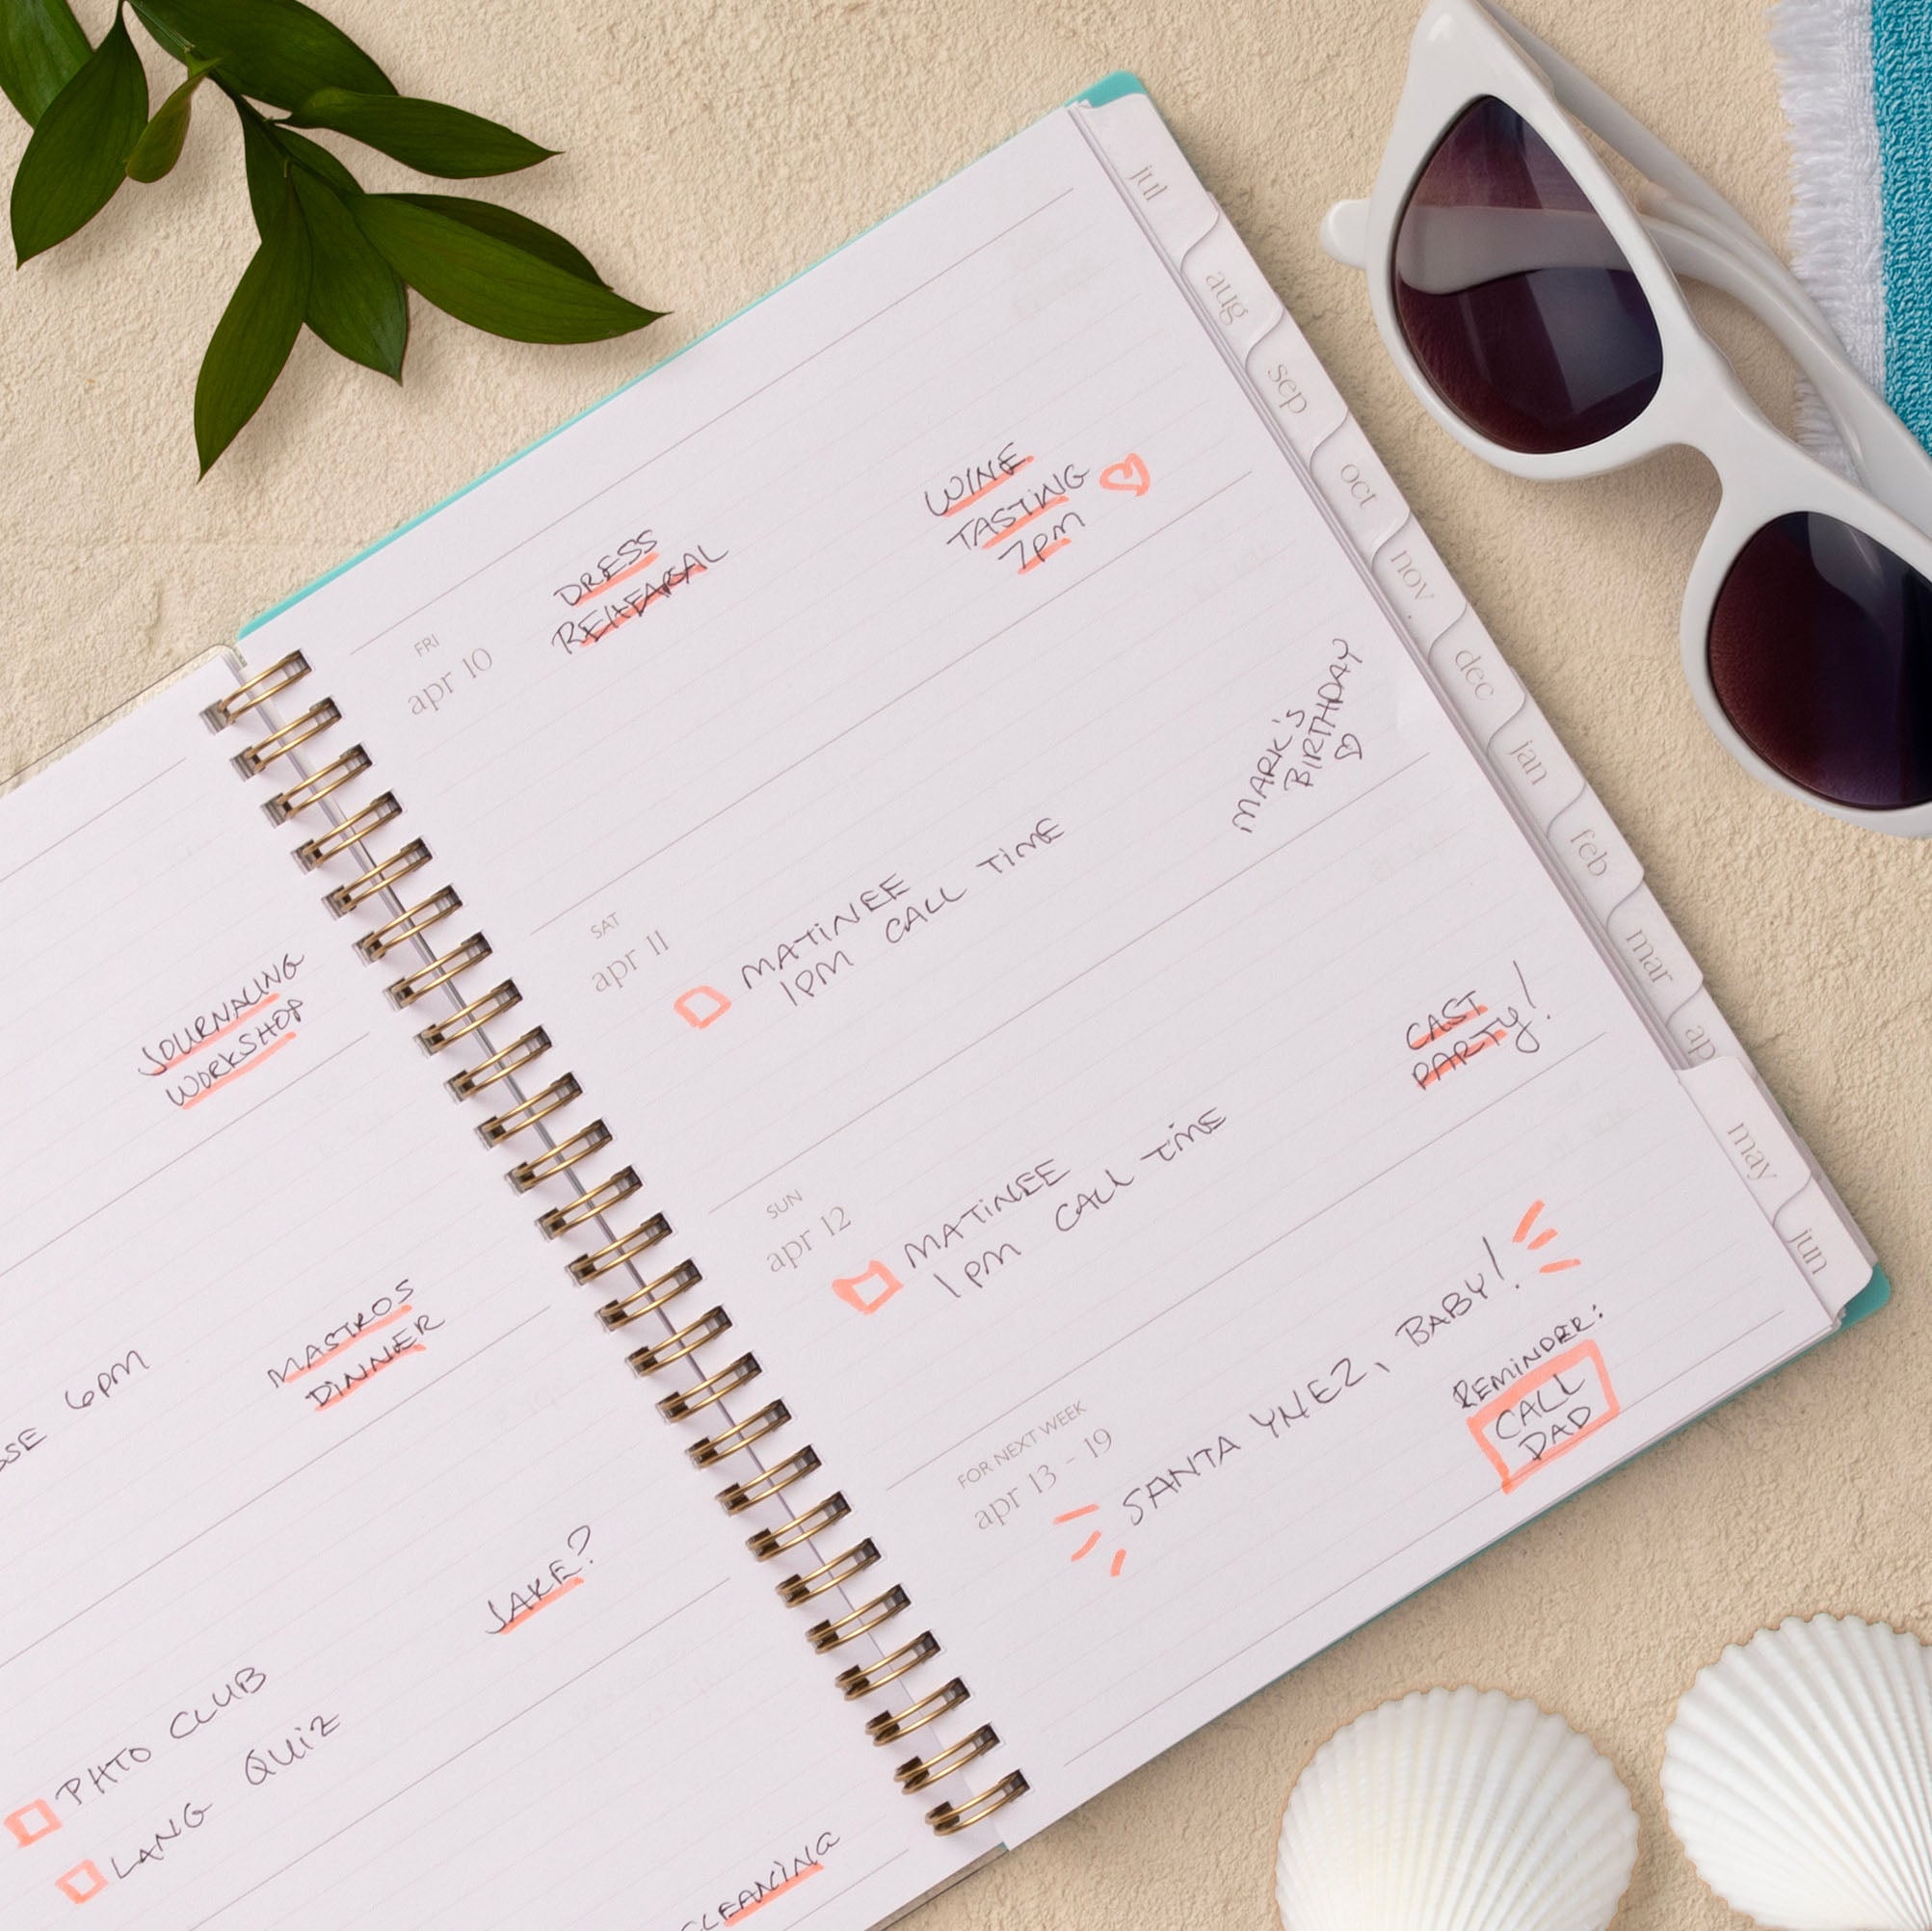 JOURNALING
WORKSHOP
6PM
MASTROS
DINNER
JAKE?
PHTO CLUB
LANG QUIZ
FRI
apr 10
DRESS
REHEARSAL
WINE
TASTING
7PM
SAT
apr 11
MATINEE
1PM CALL TIME
MARK'S
BIRTHDAY
SUN
apr 12
MATINEE
1PM CALL TIME
CAST
PARTY!
FOR NEXT WEEK
apr 13 - 19
SANTA YNEZ, BABY!
REMINDER:
CALL
DAD
jul
aug
sep
oct
nov
dec
jan
feb
mar
ap
may
jun